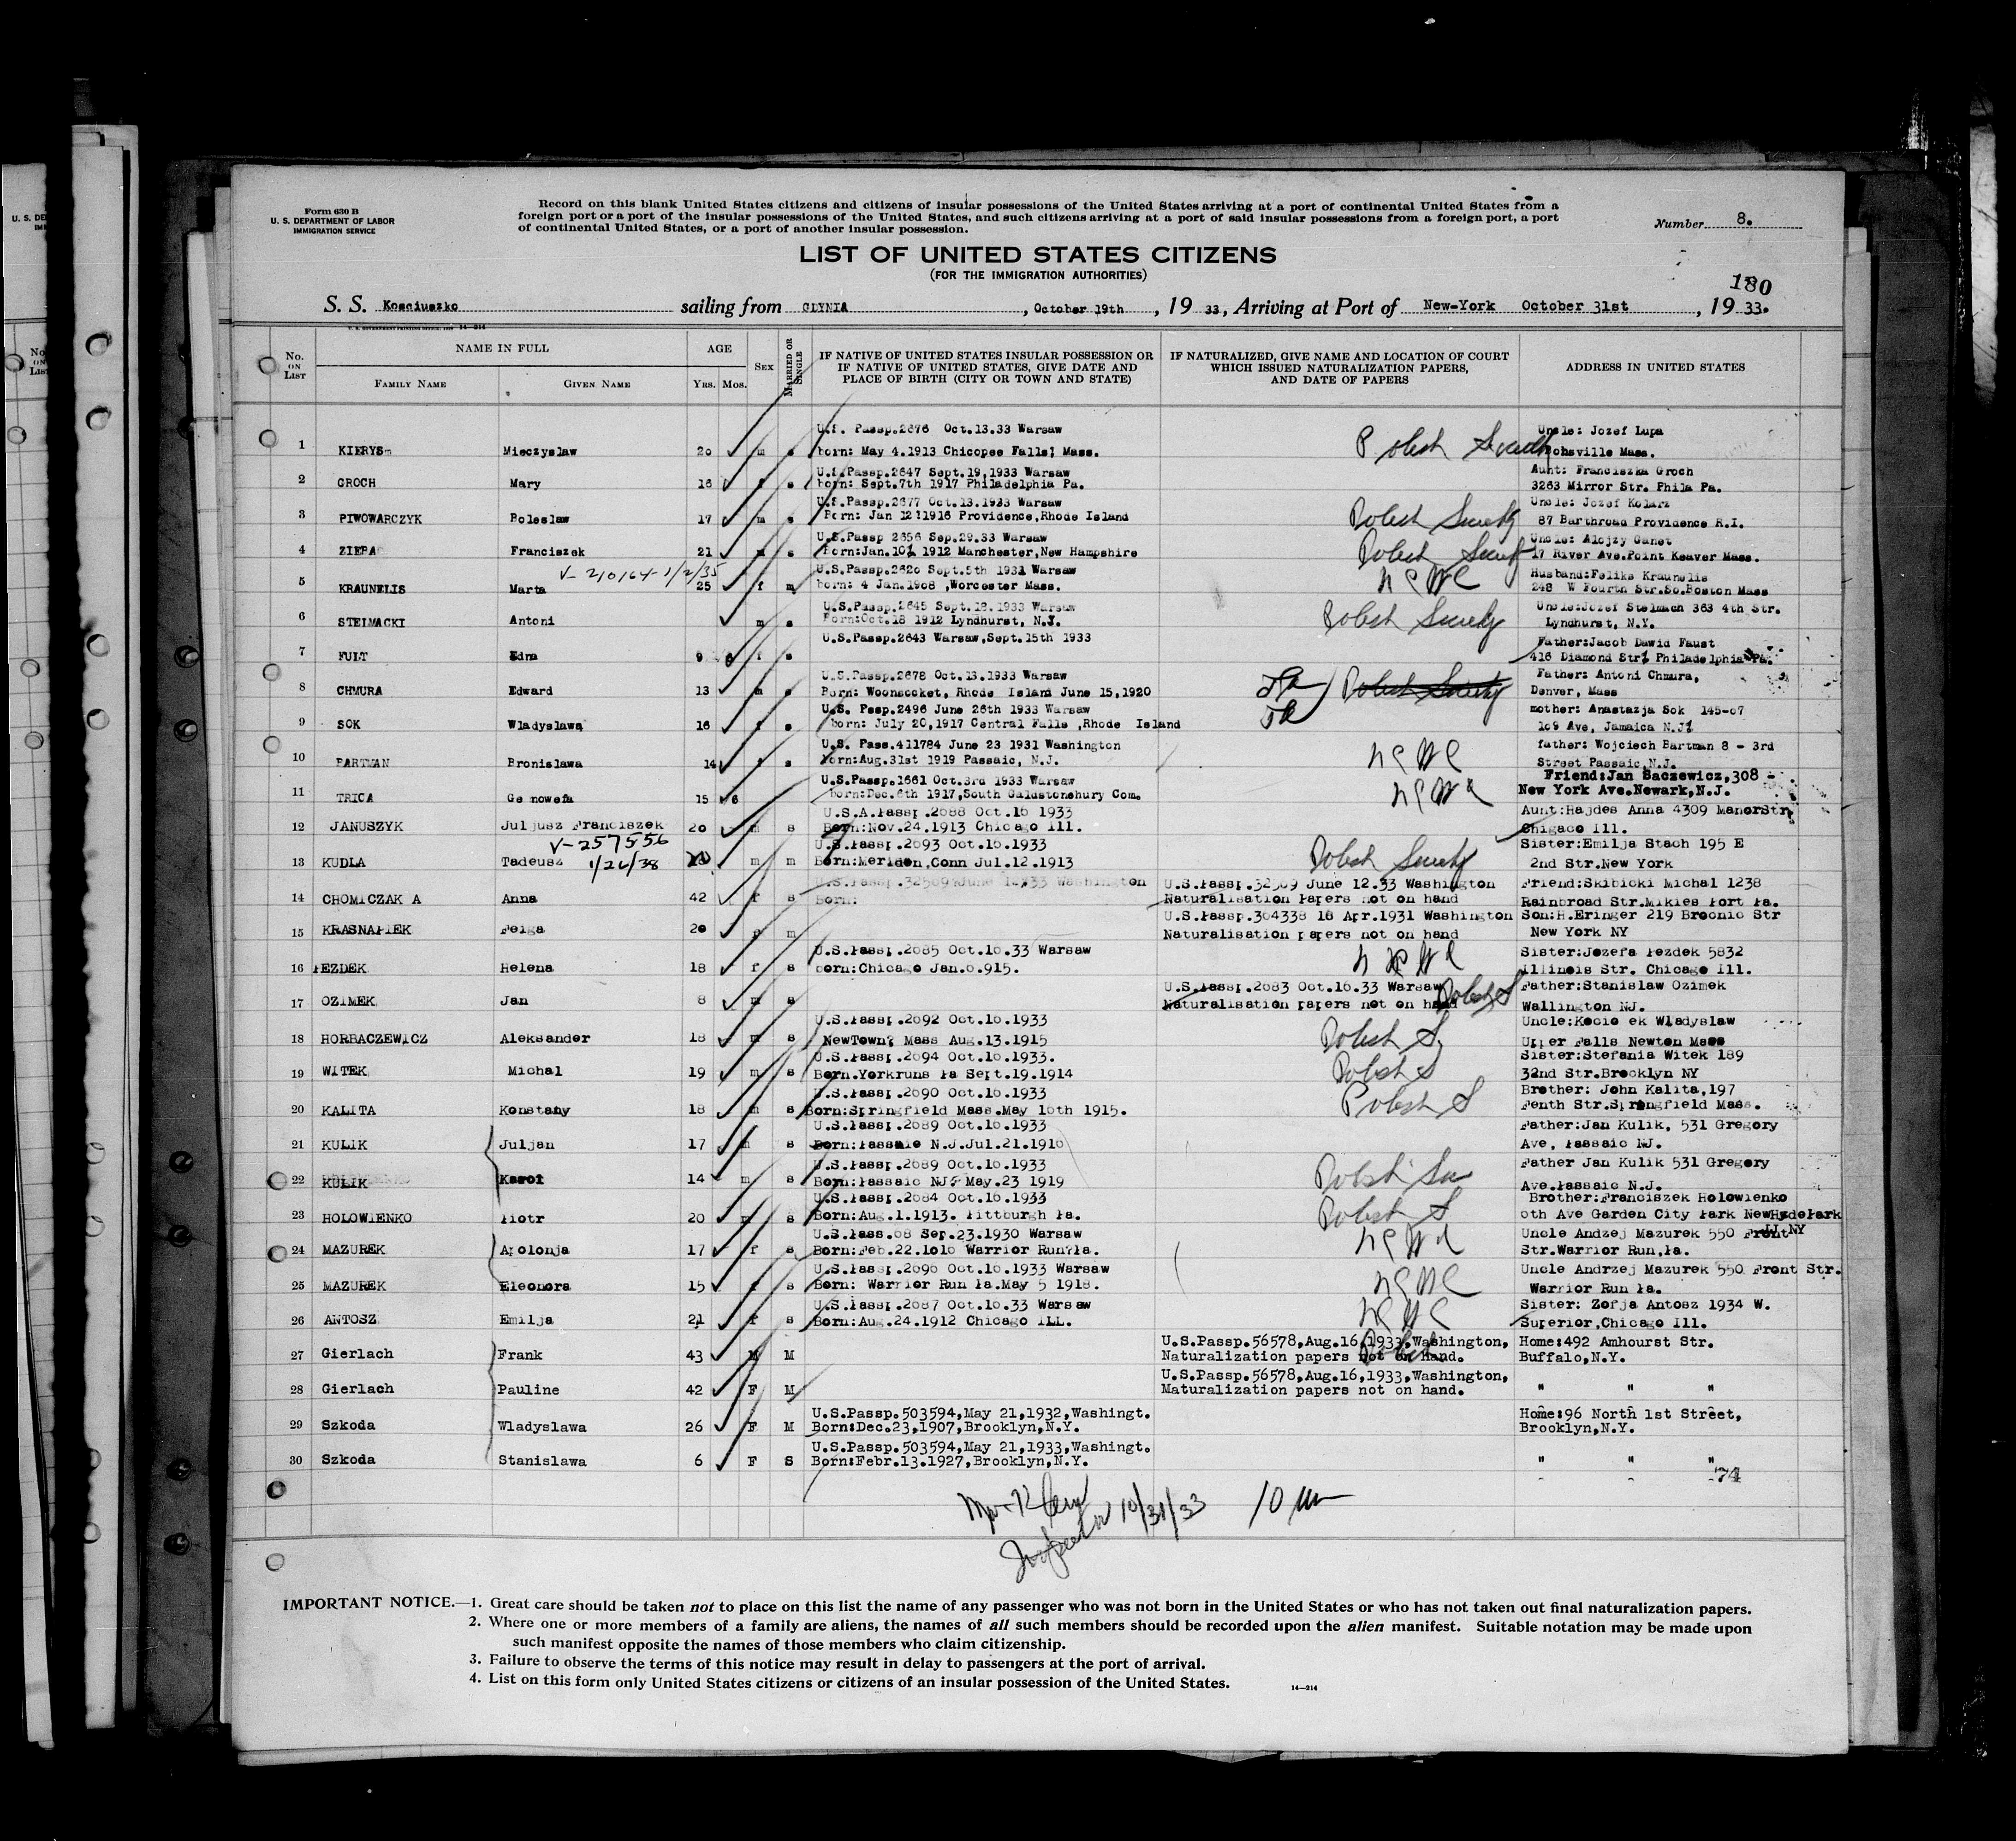 Form 630 B
U. S. DEPARTMENT OF LABOR
IMMIGRATION SERVICE
Record on this blank United States citizens and citizens of insular possessions of the United States arriving at a port of continental United States from a
foreign port or a port of the insular possessions of the United States, and such citizens arriving at a port of said insular possessions from a foreign port, a port
of continental United States, or a port of another insular possession.
Number 8.
LIST OF UNITED STATES CITIZENS
(FOR THE IMMIGRATION AUTHORITIES)
180
S. S. Kosciuszko sailing from GDYNIA, October 19th, 19 33, Arriving at Port of New-York October 31st, 19 33.
No. ON LIST
NAME IN FULL
FAMILY NAME GIVEN NAME
AGE
YRS. MOS.
SEX
MARRIED OR SINGLE
IF NATIVE OF UNITED STATES INSULAR POSSESSION OR
IF NATIVE OF UNITED STATES, GIVE DATE AND
PLACE OF BIRTH (CITY OR TOWN AND STATE)
IF NATURALIZED, GIVE NAME AND LOCATION OF COURT
WHICH ISSUED NATURALIZATION PAPERS,
AND DATE OF PAPERS
ADDRESS IN UNITED STATES
U.S. Passp.2676 Oct.13.33 Warsaw Uncle: Jozef Lupa
1 KIERYS Mieczyslaw 20 m s born: May 4.1913 Chicopee Falls; Mass. Polish Mass.
U.S.Passp.2647 Sept.19,1933 Warsaw Aunt: Franciszka Groch
2 GROCH Mary 16 f s born: Sept.7th 1917 Philadelphia Pa. 3263 Mirror Str. Phila Pa.
U.S.Passp.2677 Oct.13.1933 Warsaw Uncle: Jozef Kolarz
3 PIWOWARCZYK Boleslaw 17 m s Born: Jan 12 1916 Providence,Rhode Island Polish 87 Barthroad Providence R.I.
U.S.Passp 2656 Sep.29.33 Warsaw Uncle: Alojzy Ganet
4 ZIEBA Franciszek 21 m s Born:Jan.10 1912 Manchester,New Hampshire Polish 17 River Ave.Point Keaver Mass.
V-210164-1/2/35
U.S.Passp.2620 Sept.5th 1931 Warsaw Husband:Feliks Kraunelis
5 KRAUNELIS Marta 25 f m born: 4 Jan.1908 ,Worcester Mass. 248 W Fourth Str.So.Boston Mass
U.S.Passp.2645 Sept.18.1933 Warsaw Uncle:Jozef Stelmach 363 4th Str.
6 STELMACKI Antoni m s Born:Oct.18 1912 Lyndhurst, N.J. Polish Lyndhurst, N.Y.
U.S.Passp.2643 Warsaw,Sept.15th 1933 Father:Jacob Dawid Faust
7 FULT Edna 9 6 f s 416 Diamond Str Philadelphia Pa.
U.S.Passp.2678 Oct.13.1933 Warsaw Father: Antoni Chmura,
8 CHMURA Edward 13 m s Born: Woonsocket, Rhode Island June 15,1920 Denver, Mass
U.S. Pssp.2496 June 26th 1933 Warsaw mother: Anastazja Sok 145-07
9 SOK Wladyslawa 16 f s born: July 20,1917 Central Falls ,Rhode Island 109 Ave, Jamaica N.J.
U.S. Pass.411784 June 23 1931 Washington father: Wojciech Bartman 8 - 3rd
10 BARTMAN Bronislawa 14 f s born:Aug.31st 1919 Passaic, N.J. Street Passaic,N.J.
U.S.Passp.1661 Oct.3rd 1933 Warsaw Friend:Jan Saczewicz,308 -
11 TRICA Genowefa 15 6 born:Dec.6th 1917,South Galdstonehury Com. New York Ave.Newark,N.J.
U.S.A.Passp.2688 Oct.16 1933 Aunt:Hajdes Anna 4309 ManorStr,
12 JANUSZYK Juljusz Franciszek 20 m s Born:Nov.24.1913 Chicago Ill. Chigaco Ill.
V-257556
1/26/38
U.S.Passp.2693 Oct.16.1933 Sister:Emilja Stach 195 E
13 KUDLA Tadeusz m m Born:Meriden,Conn Jul.12.1913 Polish 2nd Str.New York
U.S.Passp.32509 June 12.33 Washington U.S.Passp.32509 June 12.33 Washington Friend:Skibicki Michal 1238
14 CHOMICZAK A Anna 42 f s Born: Naturalisation Papers not on hand Rainbroad Str.Mikles Port Pa.
U.S.Passp.304338 18 Apr.1931 Washington Son:H.Eringer 219 Broonic Str
15 KRASNAPIEK Fejga 20 f m Naturalisation papers not on hand New York NY
U.S.Passp.2685 Oct.16.33 Warsaw Sister:Jozefa Pezdek 5832
16 PEZDEK Helena 18 f s born:Chicago Jan.6.915. Illinois Str. Chicago Ill.
U.S.Passp.2683 Oct.16.33 Warsaw Father:Stanislaw Ozimek
17 OZIMEK Jan 8 m s Naturalisation papers not on hand Polish S Wallington NJ.
U.S.Passp.2692 Oct.16.1933 Uncle:Kocio ek Wladyslaw
18 HORBACZEWICZ Aleksander 18 m s NewTown, Mass Aug.13.1915 Polish S. Upper Falls Newton Mass
U.S.Passp.2694 Oct.16.1933. Sister:Stefania Witek 189
19 WITEK Michal 19 m s Born.Yorkruns Pa Sept.19.1914 Polish S 32nd Str.Brooklyn NY
U.S.Passp.2690 Oct.16.1933 Brother: John Kalita,197
20 KALITA Konstany 18 m s Born:Springfield Mass.May 16th 1915. Polish S Fenth Str.Springfield Mass.
U.S.Passp.2689 Oct.16.1933 Father:Jan Kulik, 531 Gregory
21 KULIK Juljan 17 m s Born:Passaic N.J.Jul.21.1916 Ave, Passaic NJ.
U.S.Passp.2689 Oct.16.1933 Father Jan Kulik 531 Gregory
22 KULIK Karol 14 m s Born:Passaic NJ, May.23 1919 Polish Ave.Passaic N.J.
U.S.Passp.2684 Oct.16.1933 Brother:Franciszek Holowienko
23 HOLOWIENKO Piotr 20 m s Born:Aug.1.1913. Pittburgh Pa. Polish S 6th Ave Garden City Park NewHydePark
U.S.Pass.68 Sep.23.1930 Warsaw Uncle Andzej Mazurek 550 Front
24 MAZUREK Apolonja 17 f s Born:Feb.22.1616 Warrior Run Pa. Str.Warrior Run,Pa.
U.S.Passp.2696 Oct.16.1933 Warsaw Uncle Andrzej Mazurek 550 Front Str.
25 MAZUREK Eleonora 15 f s Born: Warrior Run Pa.May 5 1918. Warrior Run Pa.
U.S.Passp.2687 Oct.16.33 Warsaw Sister: Zofja Antosz 1934 W.
26 ANTOSZ Emilja 21 f s Born:Aug.24.1912 Chicago ILL. Superior,Chicago Ill.
U.S.Passp.56578,Aug.16,1933,Washington, Home:492 Amhourst Str.
27 Gierlach Frank 43 M M Naturalization papers not on hand. Buffalo,N.Y.
U.S.Passp.56578,Aug.16,1933,Washington,
28 Gierlach Pauline 42 F M Maturalization papers not on hand. " " "
U.S.Passp.503594,May 21,1932,Washingt. Home:96 North 1st Street,
29 Szkoda Wladyslawa 26 F M Born:Dec.23,1907,Brooklyn,N.Y. Brooklyn,N.Y.
U.S.Passp.503594,May 21,1933,Washingt.
30 Szkoda Stanislawa 6 F S Born:Febr.13.1927,Brooklyn,N.Y. " " "
74
Inspector 10/31/33
IMPORTANT NOTICE.—1. Great care should be taken not to place on this list the name of any passenger who was not born in the United States or who has not taken out final naturalization papers.
2. Where one or more members of a family are aliens, the names of all such members should be recorded upon the alien manifest. Suitable notation may be made upon
such manifest opposite the names of those members who claim citizenship.
3. Failure to observe the terms of this notice may result in delay to passengers at the port of arrival.
4. List on this form only United States citizens or citizens of an insular possession of the United States.
14—214